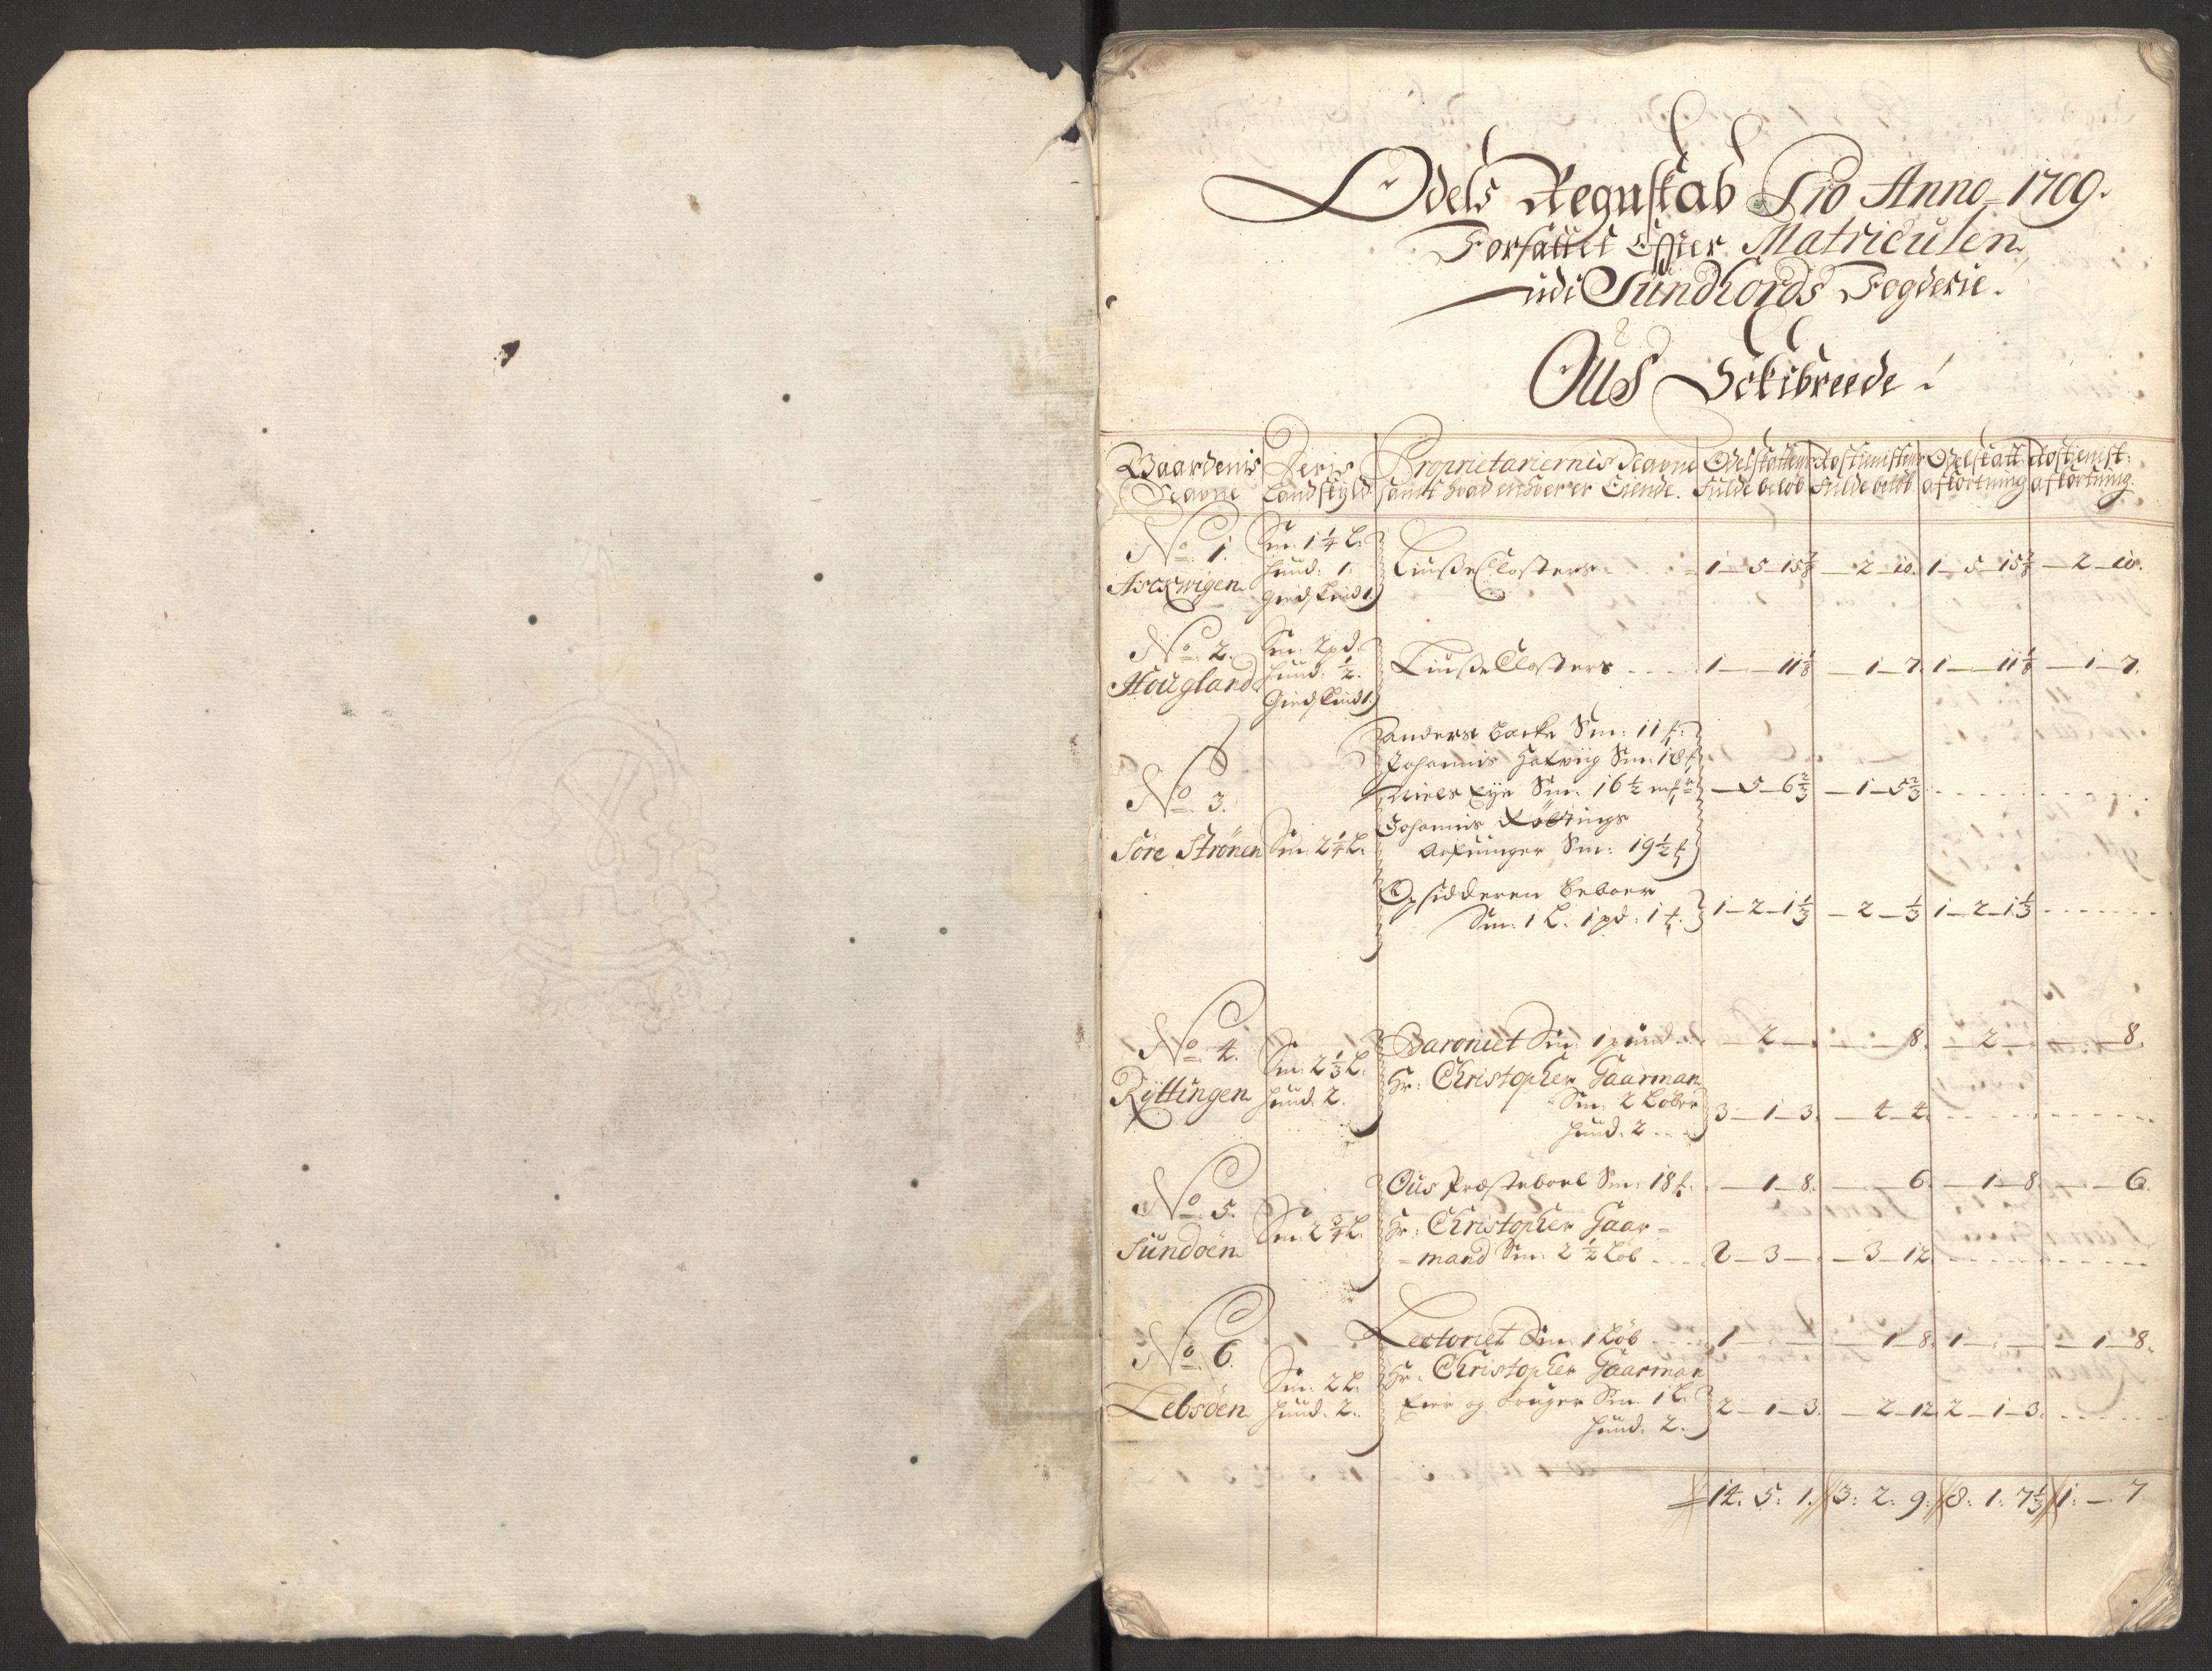 Odels Regnskab Pro Anno 1709.
Forfattet Effter Matriculen
udi Sundhords Fogderie.
Ous Sckibreede
Gaardenis Navne
Deris Landskyld
Proprietariernis Nafne samt hvad enhver er Eiende.
Odelskattens fulde beløb
Rostienistens fulde beløb
Odelskatt: afkortning
Rostienist: afkortning.
No. 1. Sm: 1 1/4 L:
Asckvigen hund: 1. giedskind 1.
Liuße Closters 1 – 5 – 15 7/8 – 2 – 10. 1 – 5 – 15 7/8 – 2 – 10.
No. 2. Sm: 2 pd.
Hougland hund: 1/2. Giedskind 1.
Liuße Closters 1 – – 11 1/8 – 1 – 7. 1 – – 11 1/8 – 1 – 7.
No. 3.
Søre Strønen Sm: 2 1/4 L.
Anders Backe Sm: 11
Johannis Sm: 18
Niels Eye Sm: 16 1/2 – 5 – 6 2/3 – 1 – 5 2/3
Johannis Røttings
Arfvinger Sm: 19 1/2
Opsidderen beboer
Sm: 1 L. 1 pd: 1 1 – 2 – 1 1/3 – 2 – 1/3 1 – 2 – 1 1/3
No. 4. Sm: 2 1/3 L.
Ryttingen hund. 2.
Baroniet Sm: 1 pund – 2 – – – 8. – 2 – – – 8.
Hr: Christopher Gaarman
Sm: 2 Løber
hund. 2 3 – 1 – 3. – 4 – 4.
No. 5.
Sundøen Sm: 2 3/4 L.
Ous Præsteboel Sm: 18 – 1 – 8. – – 6. – 1 – 8. – – 6.
Hr: Christopher Gaar=
=mand Sm: 2 1/2 Løb 2 – 3 – – 3 – 12
No. 6.
Lebsøen Sm: 2 L. hund. 2.
Lectoriet Sm: 1 Løb 1 – – – 1 – 8. 1 – – – 1 – 8.
Hr: Christopher Gaarman
Eier og bruger Sm: 1 L.
hund. 2. 2 – 1 – 3. – 2 – 12. 2 – 1 – 3.
14. 5: 1. 3: 2: 9. 8: 1: 7 1/3 1: – 7